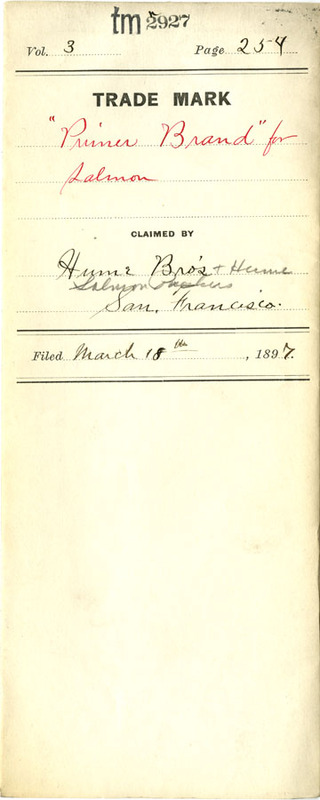 tm 2927
Vol. 3 Page 254
TRADE MARK
"Primer Brand" for
Salmon
CLAIMED BY
Hume Bro's + Hume
Salmon Packers
San Francisco.
Filed March 18th, 1897.